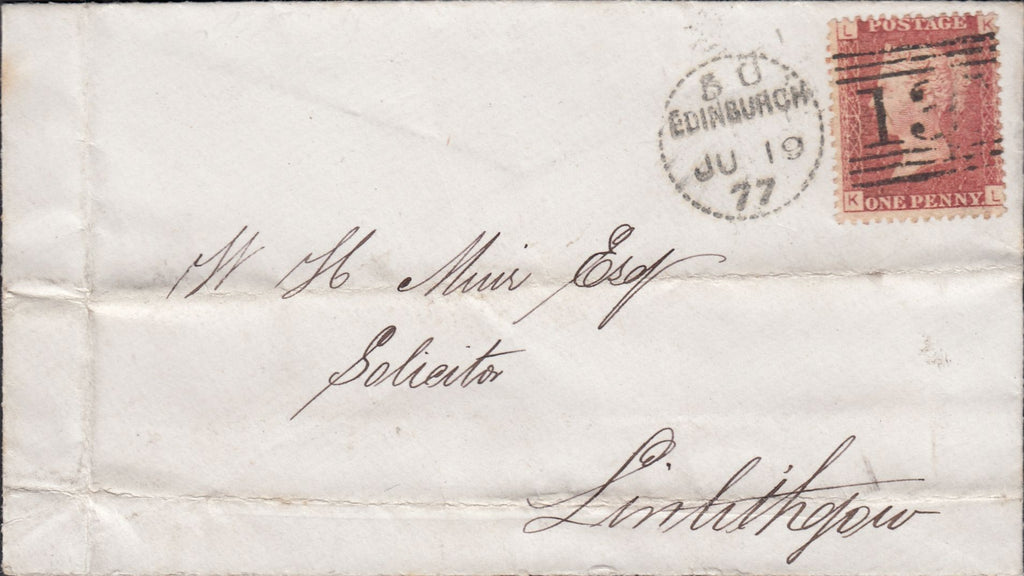 L POSTAGE K
131
K ONE PENNY L
5 U
EDINBURGH
JU 19
77
W H Muir Esq
Solicitor
Linlithgow